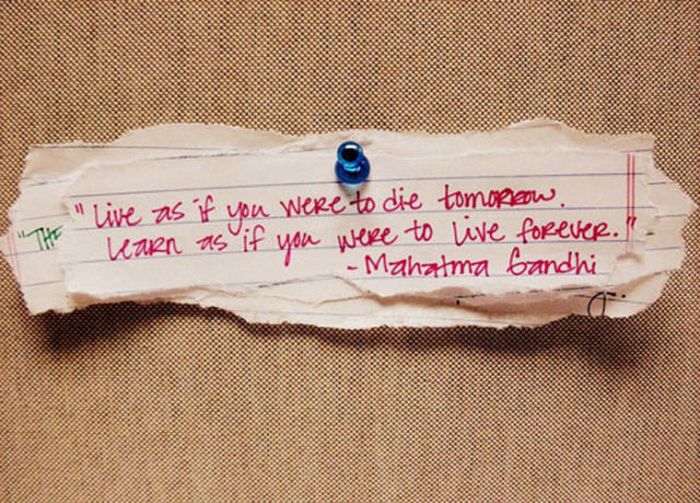 "Live as if you were to die tomorrow.
"THE
Learn as if you were to live forever."
-Mahatma Gandhi